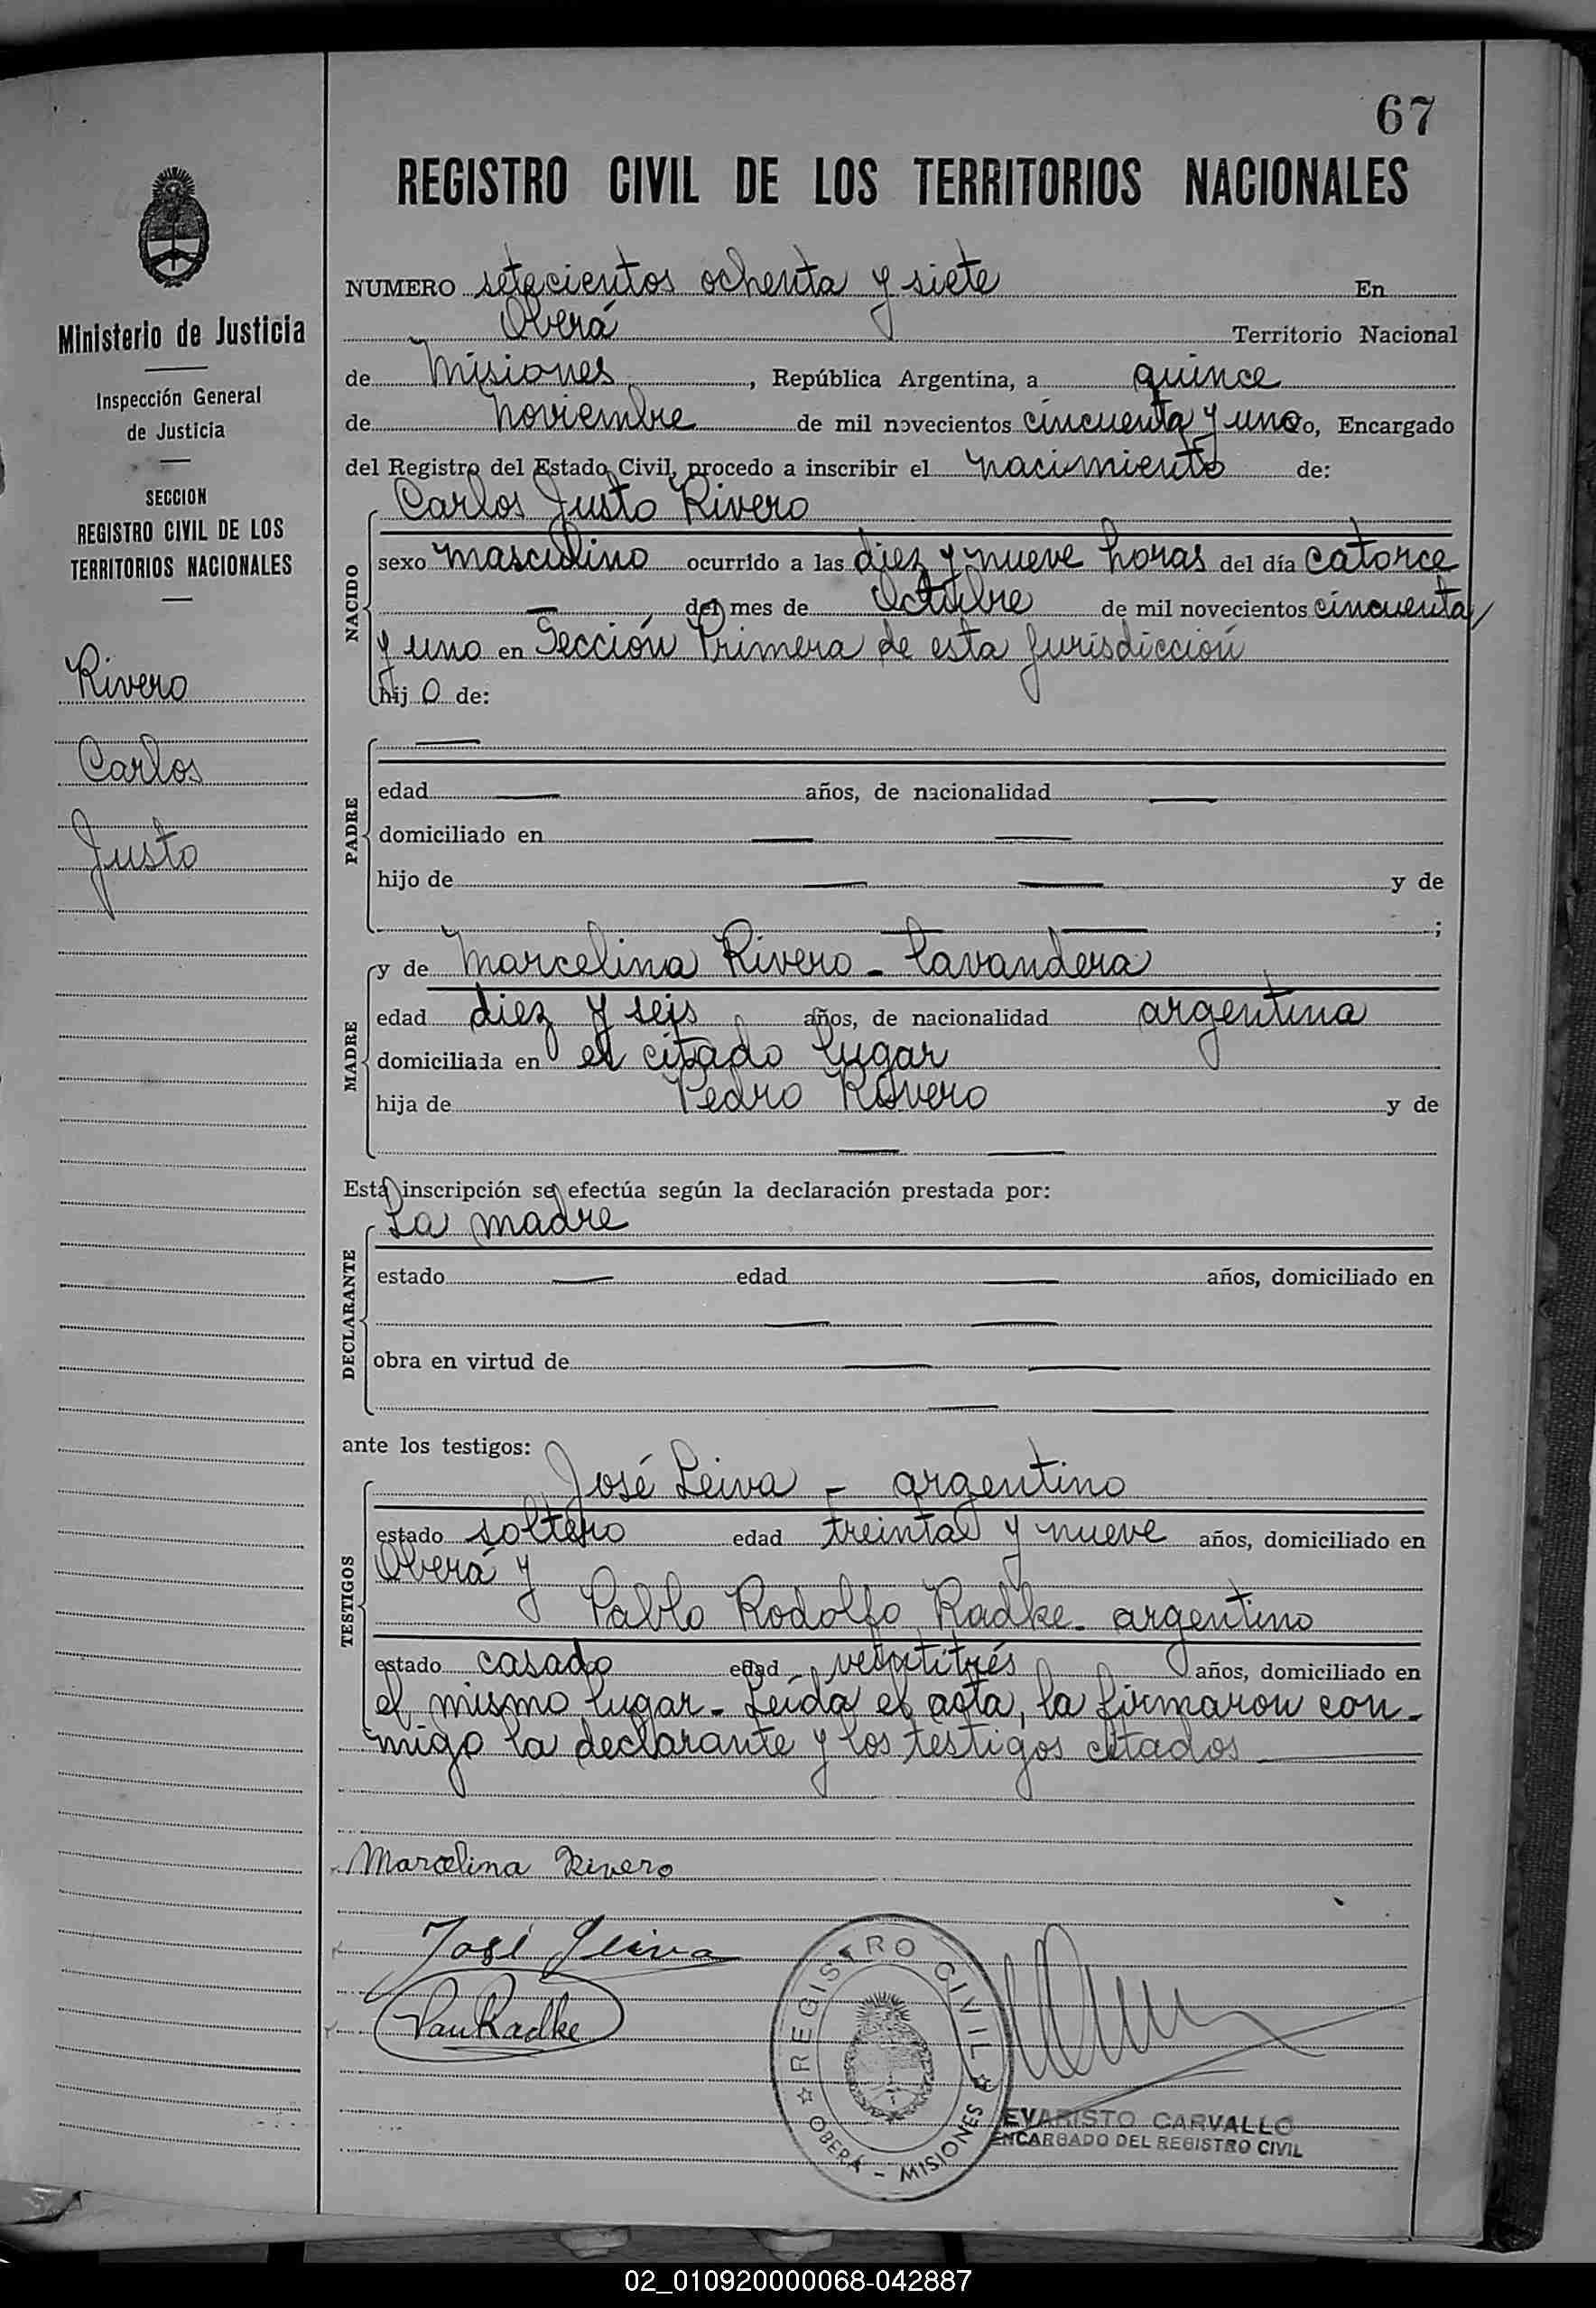 67
REGISTRO CIVIL DE LOS TERRITORIOS NACIONALES
Ministerio de Justicia
Inspección General
de Justicia
SECCION
REGISTRO CIVIL DE LOS
TERRITORIOS NACIONALES
Rivero
Carlos
Justo
NUMERO setecientos ochenta y siete En
Oberá Territorio Nacional
de Misiones, República Argentina, a quince
de noviembre de mil novecientos cincuenta y uno yo, Encargado
del Registro del Estado Civil, procedo a inscribir el nacimiento de:
NACIDO
Carlos Justo Rivero
sexo masculino ocurrido a las diez y nueve horas del día catorce
— del mes de Octubre de mil novecientos cincuenta
y uno en Sección Primera de esta jurisdicción
hij o de:
PADRE
—
edad — años, de nacionalidad —
domiciliado en — —
hijo de — — y de
— — ;
MADRE
y de Marcelina Rivero - lavandera
edad diez y seis años, de nacionalidad argentina
domiciliada en el citado lugar
hija de Pedro Rivero y de
— —
Esta inscripción se efectúa según la declaración prestada por:
DECLARANTE
La madre
estado — edad — años, domiciliado en
— —
obra en virtud de — —
— —
ante los testigos:
TESTIGOS
José Leiva - argentino
estado soltero edad treinta y nueve años, domiciliado en
Oberá y
Pablo Rodolfo Radke - argentino
estado casado edad veintitrés años, domiciliado en
el mismo lugar - Leída el acta, la firmaron con-
migo la declarante y los testigos citados
Marcelina Rivero
José Leiva
Radke
REGISTRO CIVIL
OBERÁ - MISIONES
EVARISTO CARVALLO
ENCARGADO DEL REGISTRO CIVIL
02_010920000068-042887